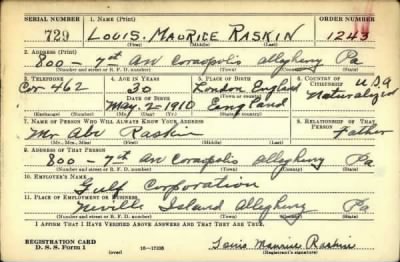 SERIAL NUMBER 1. NAME (Print) ORDER NUMBER
729 LOUIS. MAURICE RASKIN 1243
(First) (Middle) (Last)
2. ADDRESS (Print)
800 - 7th Av Coraopolis Allegheny Pa
(Number and street or R. F. D. number) (Town) (County) (State)
3. TELEPHONE 4. AGE IN YEARS 5. PLACE OF BIRTH 6. COUNTRY OF CITIZENSHIP
Cor 462 30 London England U S A
DATE OF BIRTH (Town or county) Naturalized
May. 2 - 1910 England
(Exchange) (Number) (Mo.) (Day) (Yr.) (State or country)
7. NAME OF PERSON WHO WILL ALWAYS KNOW YOUR ADDRESS 8. RELATIONSHIP OF THAT PERSON
Mr Abe Raskin Father
(Mr., Mrs., Miss) (First) (Middle) (Last)
9. ADDRESS OF THAT PERSON
800 - 7th Av Coraopolis Allegheny Pa
(Number and street or R. F. D. number) (Town) (County) (State)
10. EMPLOYER'S NAME
Gulf Corporation
11. PLACE OF EMPLOYMENT OR BUSINESS
Neville Island Allegheny Pa
(Number and street or R. F. D. number) (Town) (County) (State)
I AFFIRM THAT I HAVE VERIFIED ABOVE ANSWERS AND THAT THEY ARE TRUE.
REGISTRATION CARD
D. S. S. Form 1 (over) Louis Maurice Raskin
(Registrant's signature)